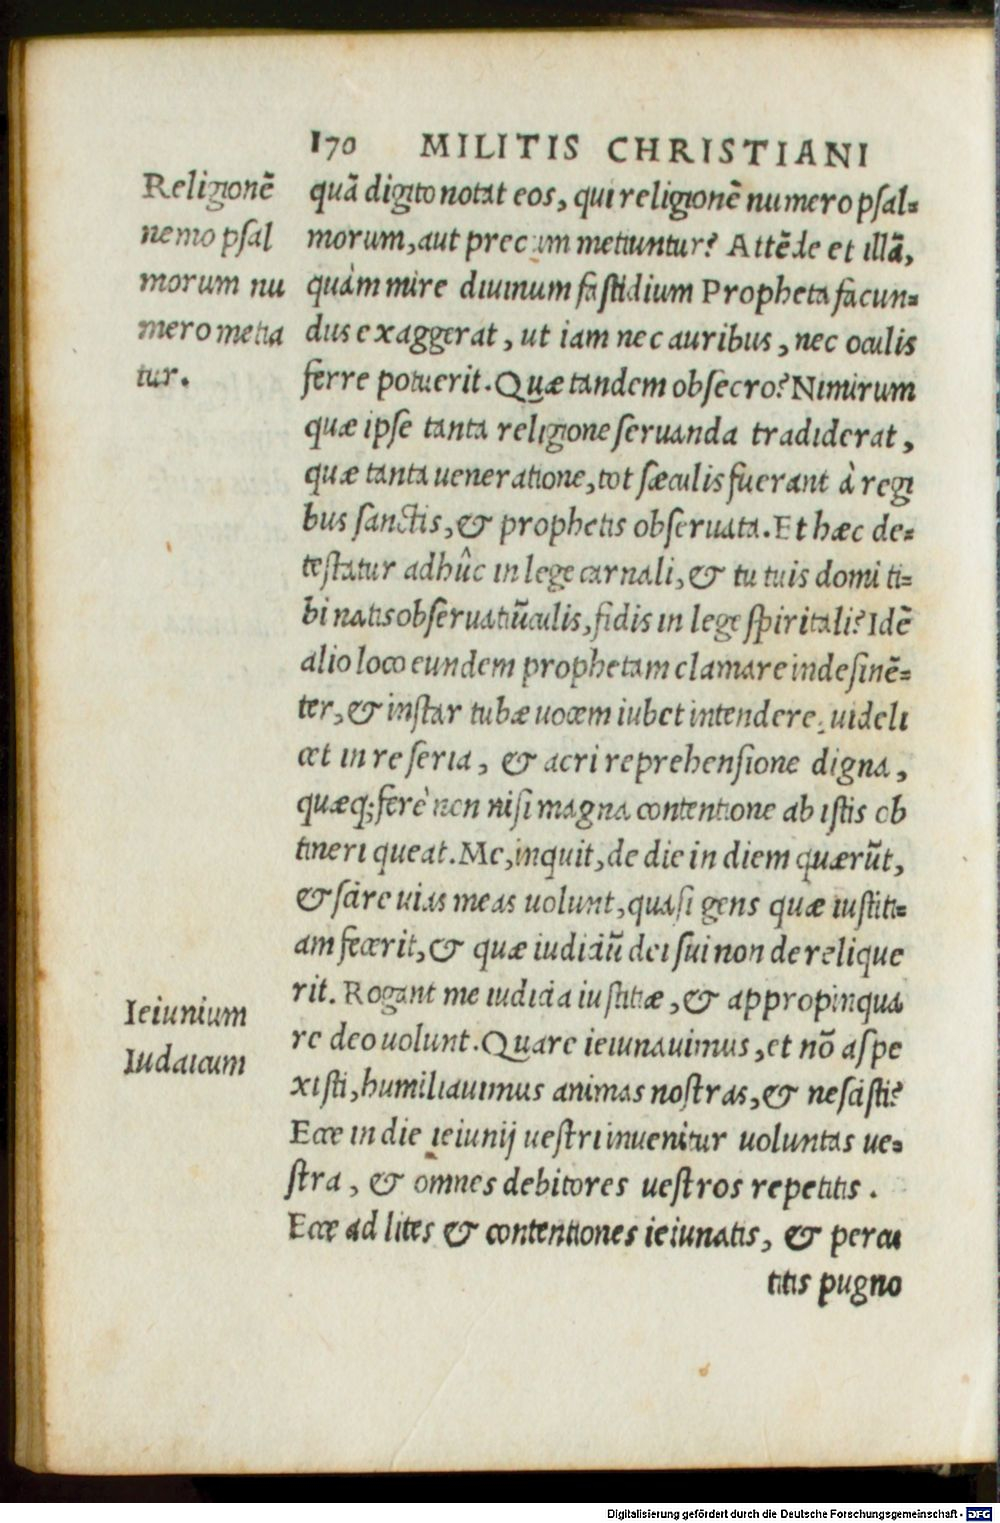 170 MILITIS CHRISTIANI
Religionē
nemo psal
morum nu
mero metia
tur.
quā digito notat eos, qui religionē numero psal-
morum, aut precum metiuntur? Attēde et illā,
quàm mire diuinum fastidium Propheta facun-
dus exaggerat, ut iam nec auribus, nec oculis
ferre potuerit. Quæ tandem obsecro? Nimirum
quæ ipse tanta religione seruanda tradiderat,
quæ tanta ueneratione, tot sæculis fuerant à regi
bus sanctis, & prophetis obseruata. Et hæc de-
testatur adhûc in lege carnali, & tu tuis domi ti-
bi natis obseruatiūculis, fidis in lege spiritali? Idē
alio loco eundem prophetam clamare indesinē-
ter, & instar tubæ uocem iubet intendere, uideli
cet in re seria, & acri reprehensione digna,
quæq; ferè non nisi magna contentione ab istis ob
tineri queat. Me, inquit, de die in diem quærūt,
& scire uias meas uolunt, quasi gens quæ iustiti-
am fecerit, & quæ iudiciū dei sui non derelique
rit. Rogant me iudicia iustitiæ, & appropinqua
re deo uolunt. Quare ieiunauimus, et nō aspe
xisti, humiliauimus animas nostras, & nescisti?
Ecce in die ieiunij uestri inuenitur uoluntas ue-
stra, & omnes debitores uestros repetitis.
Ecce ad lites & contentiones ieiunatis, & percu
titis pugno
Ieiunium
Iudaicum
Digitalisierung gefördert durch die Deutsche Forschungsgemeinschaft - DFG